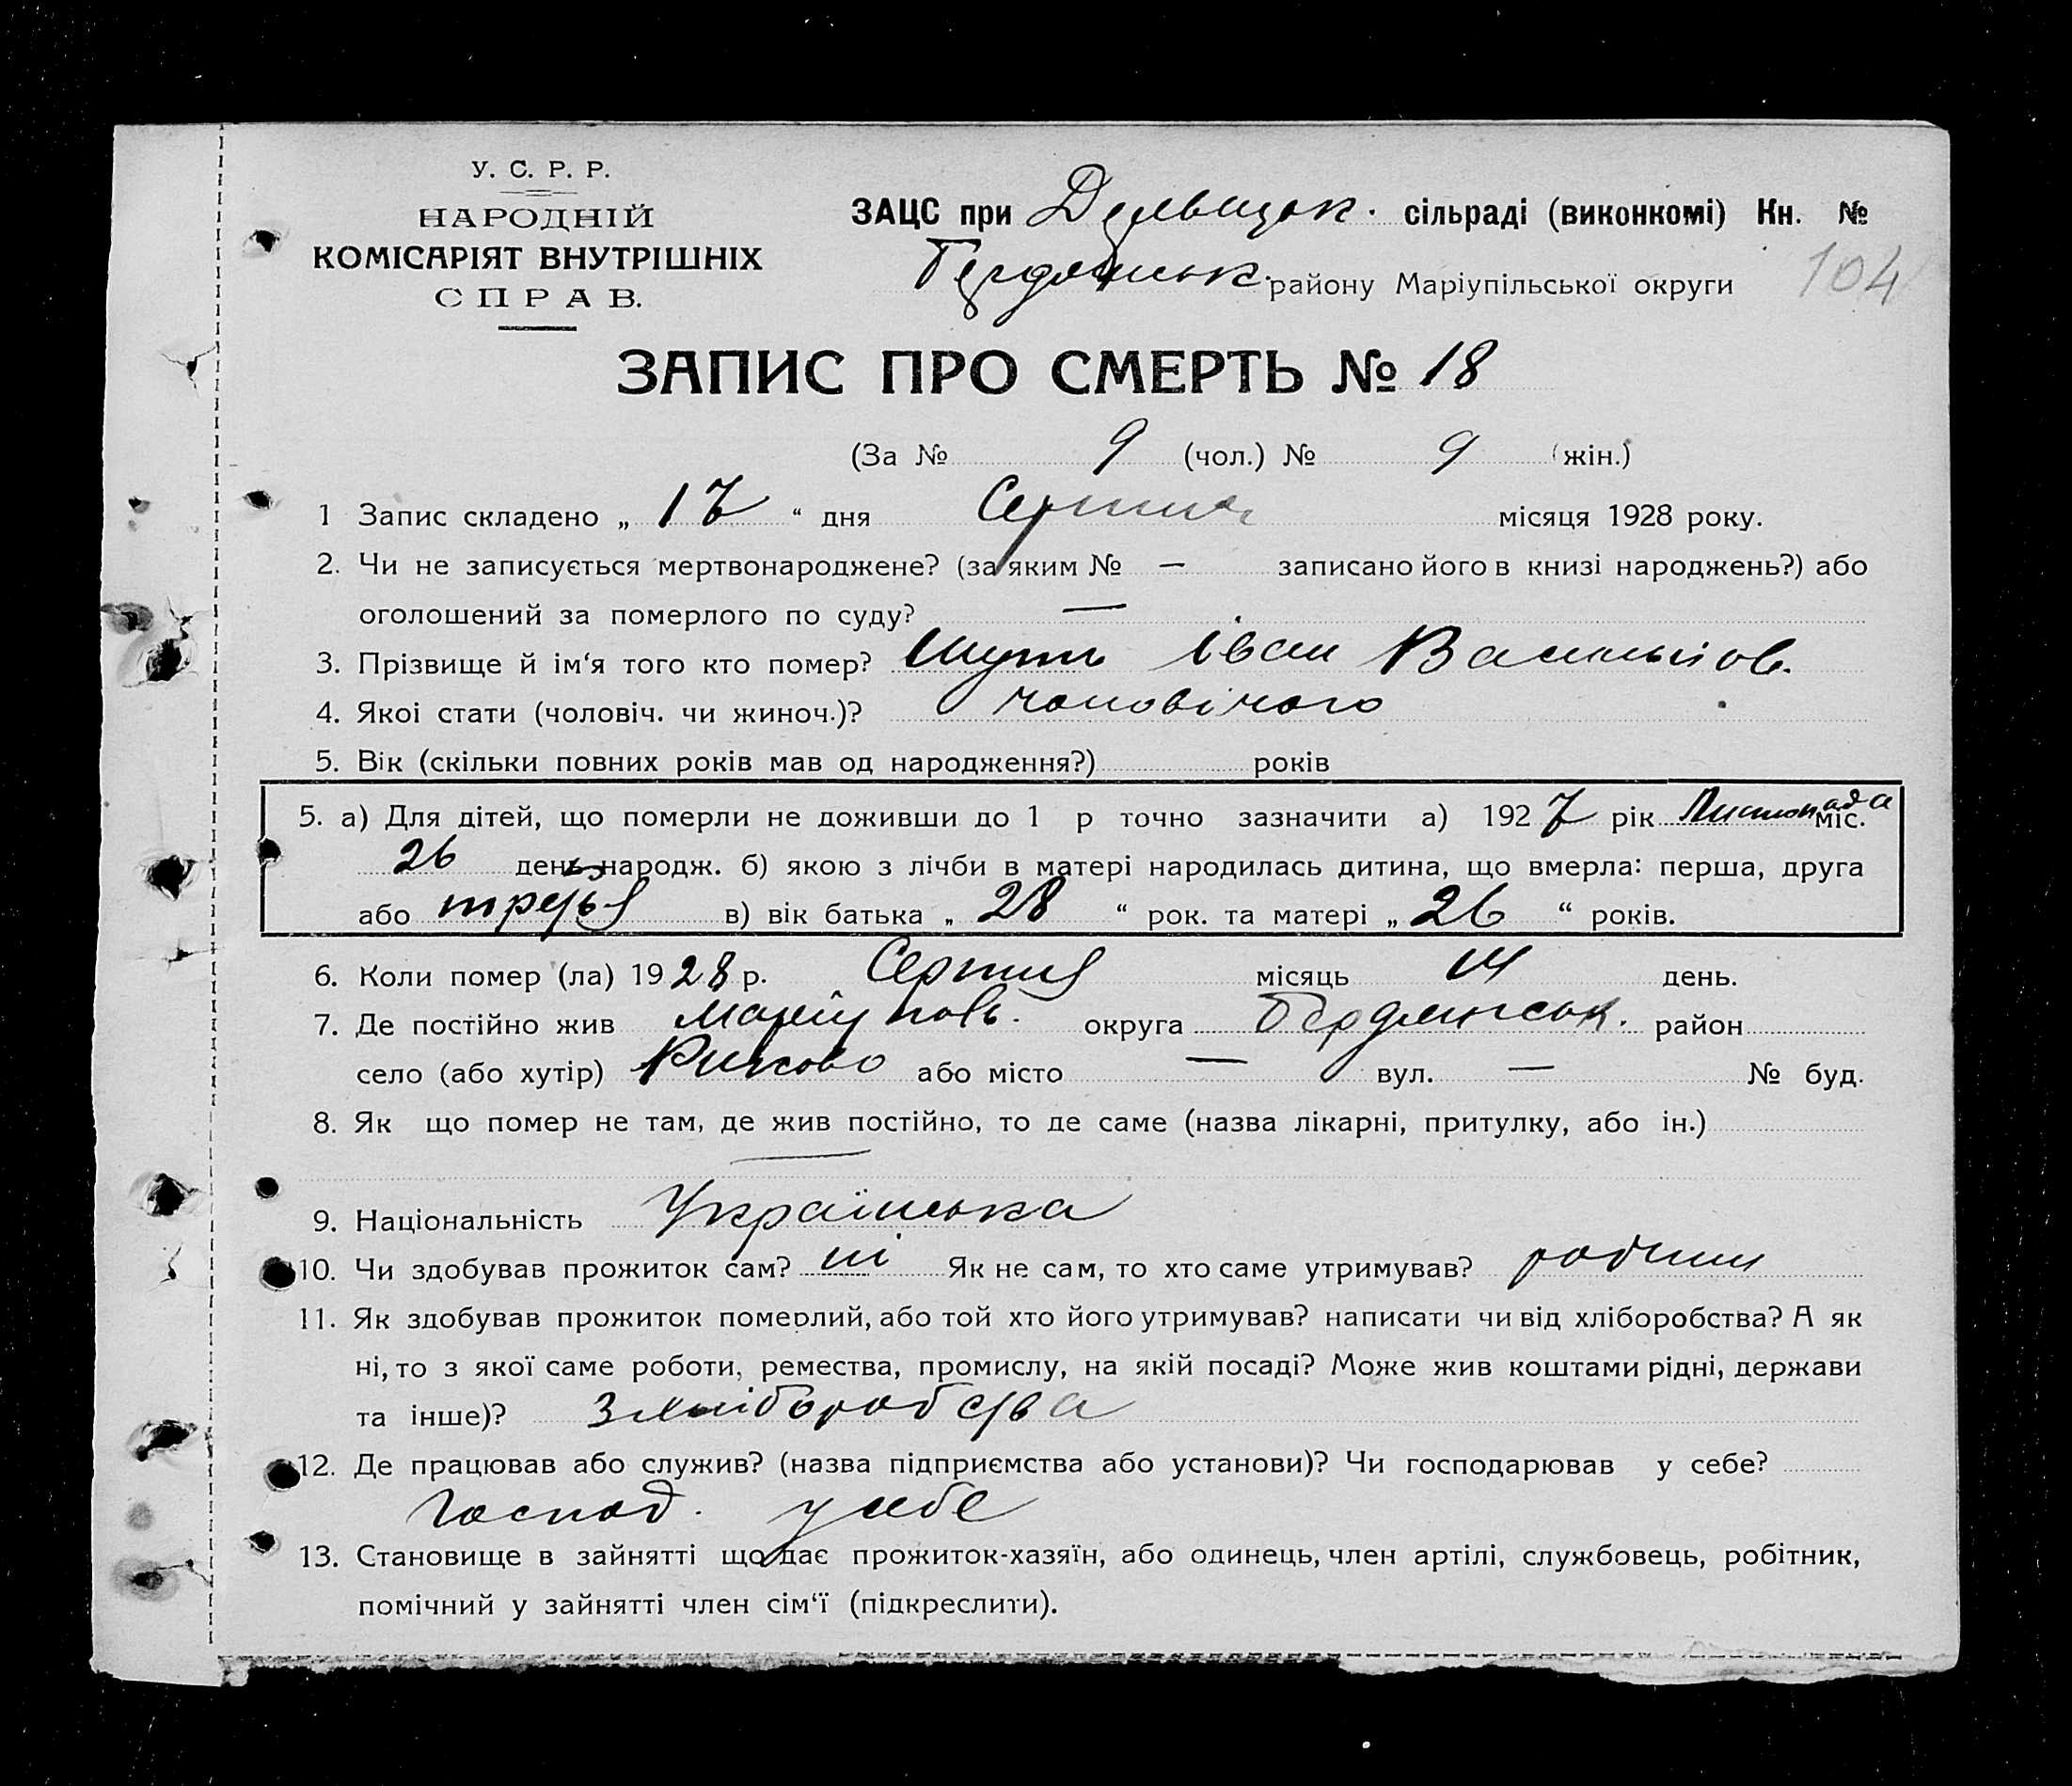 У. С. Р. Р.
НАРОДНІЙ
КОМІСАРІЯТ ВНУТРІШНІХ
СПРАВ.
ЗАЦС при сільраді (виконкомі) Кн. №
Бердянськ. району Маріупільської округи 104
ЗАПИС ПРО СМЕРТЬ № 18
(За № 9 (чол.) № 9 (жін.)
1 Запис складено „ 17 “ дня Серпня місяця 1928 року.
2. Чи не записується мертвонароджене? (за яким № — записано його в книзі народжень?) або
оголошений за померлого по суду? —
3. Прізвище й ім‘я того кто помер? Шуть Іван Васильов.
4. Якоі стати (чоловіч. чи жиноч.)? чоловічого
5. Вік (скільки повних років мав од народження?) років
5. а) Для дітей, що померли не доживши до 1 р точно зазначити а) 1927 рік Листопада міс.
26 день народж. б) якою з лічби в матері народилась дитина, що вмерла: перша, друга
або третья в) вік батька „ 28 “ рок. та матері „ 26 “ років.
6. Коли помер (ла) 1928 р. Серпня місяць 14 день.
7. Де постійно жив Маріупольс. округа Бердянськ. район
село (або хутір) або місто — вул. — № буд.
8. Як що помер не там, де жив постійно, то де саме (назва лікарні, притулку, або ін.)
—
9. Національність Українська
10. Чи здобував прожиток сам? ні Як не сам, то хто саме утримував? родини
11. Як здобував прожиток померлий, або той хто його утримував? написати чи від хліборобства? А як
ні, то з якої саме роботи, ремества, промислу, на якій посаді? Може жив коштами рідні, держави
та інше)? З хліборобства
12. Де працював або служив? (назва підприємства або установи)? Чи господарював у себе?
Господ. у себе
13. Становище в зайнятті що дає прожиток-хазяїн, або одинець, член артілі, службовець, робітник,
помічний у зайнятті член сім‘ї (підкреслити).